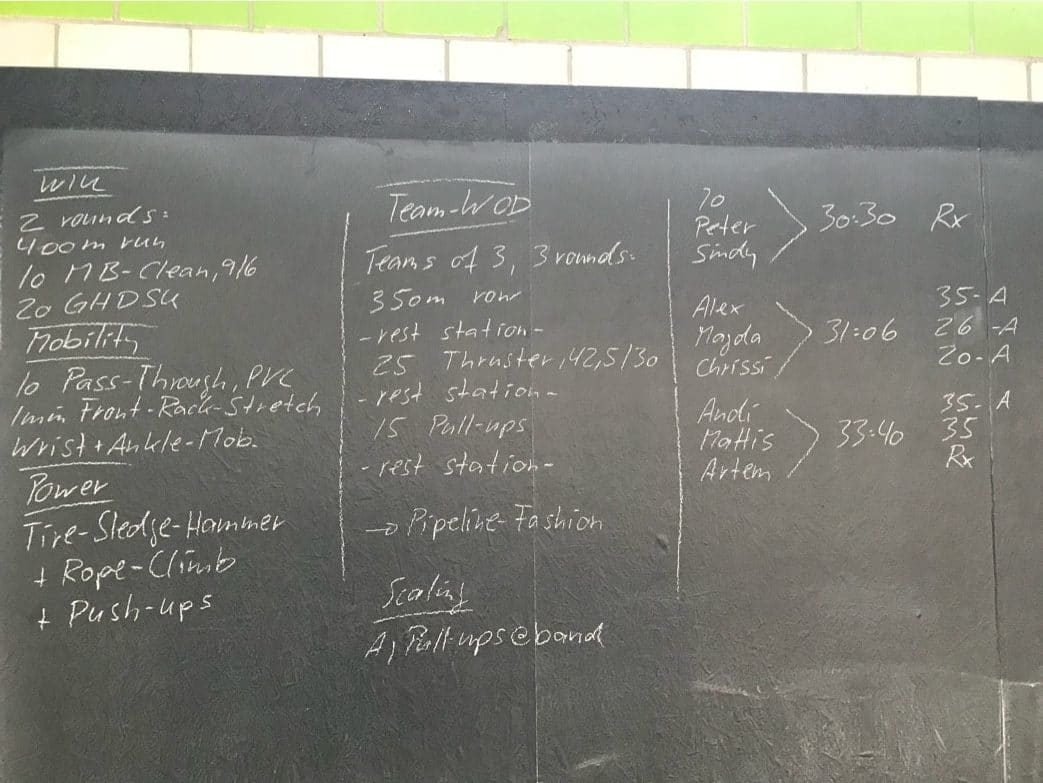 WU
2 rounds:
400m run
10 MB-Clean, 9/6
20 GHDSU
Mobility
10 Pass-Through, PVC
1min Front-Rack-Stretch
Wrist + Ankle-Mob.
Power
Tire-Sledge-Hammer
+ Rope-Climb
+ Push-ups
Team-WOD
Teams of 3, 3 rounds:
350m row
- rest station -
25 Thruster, 42,5/30
- rest station -
15 Pull-ups
- rest station -
→ Pipeline-Fashion
Scaling
A) Pull-ups@band
Jo
Peter
Sindy
30:30 Rx
Alex 35-A
Magda 31:06 26-A
Chrissi 20-A
Andi 35-A
Mattis 33:40 35
Artem Rx